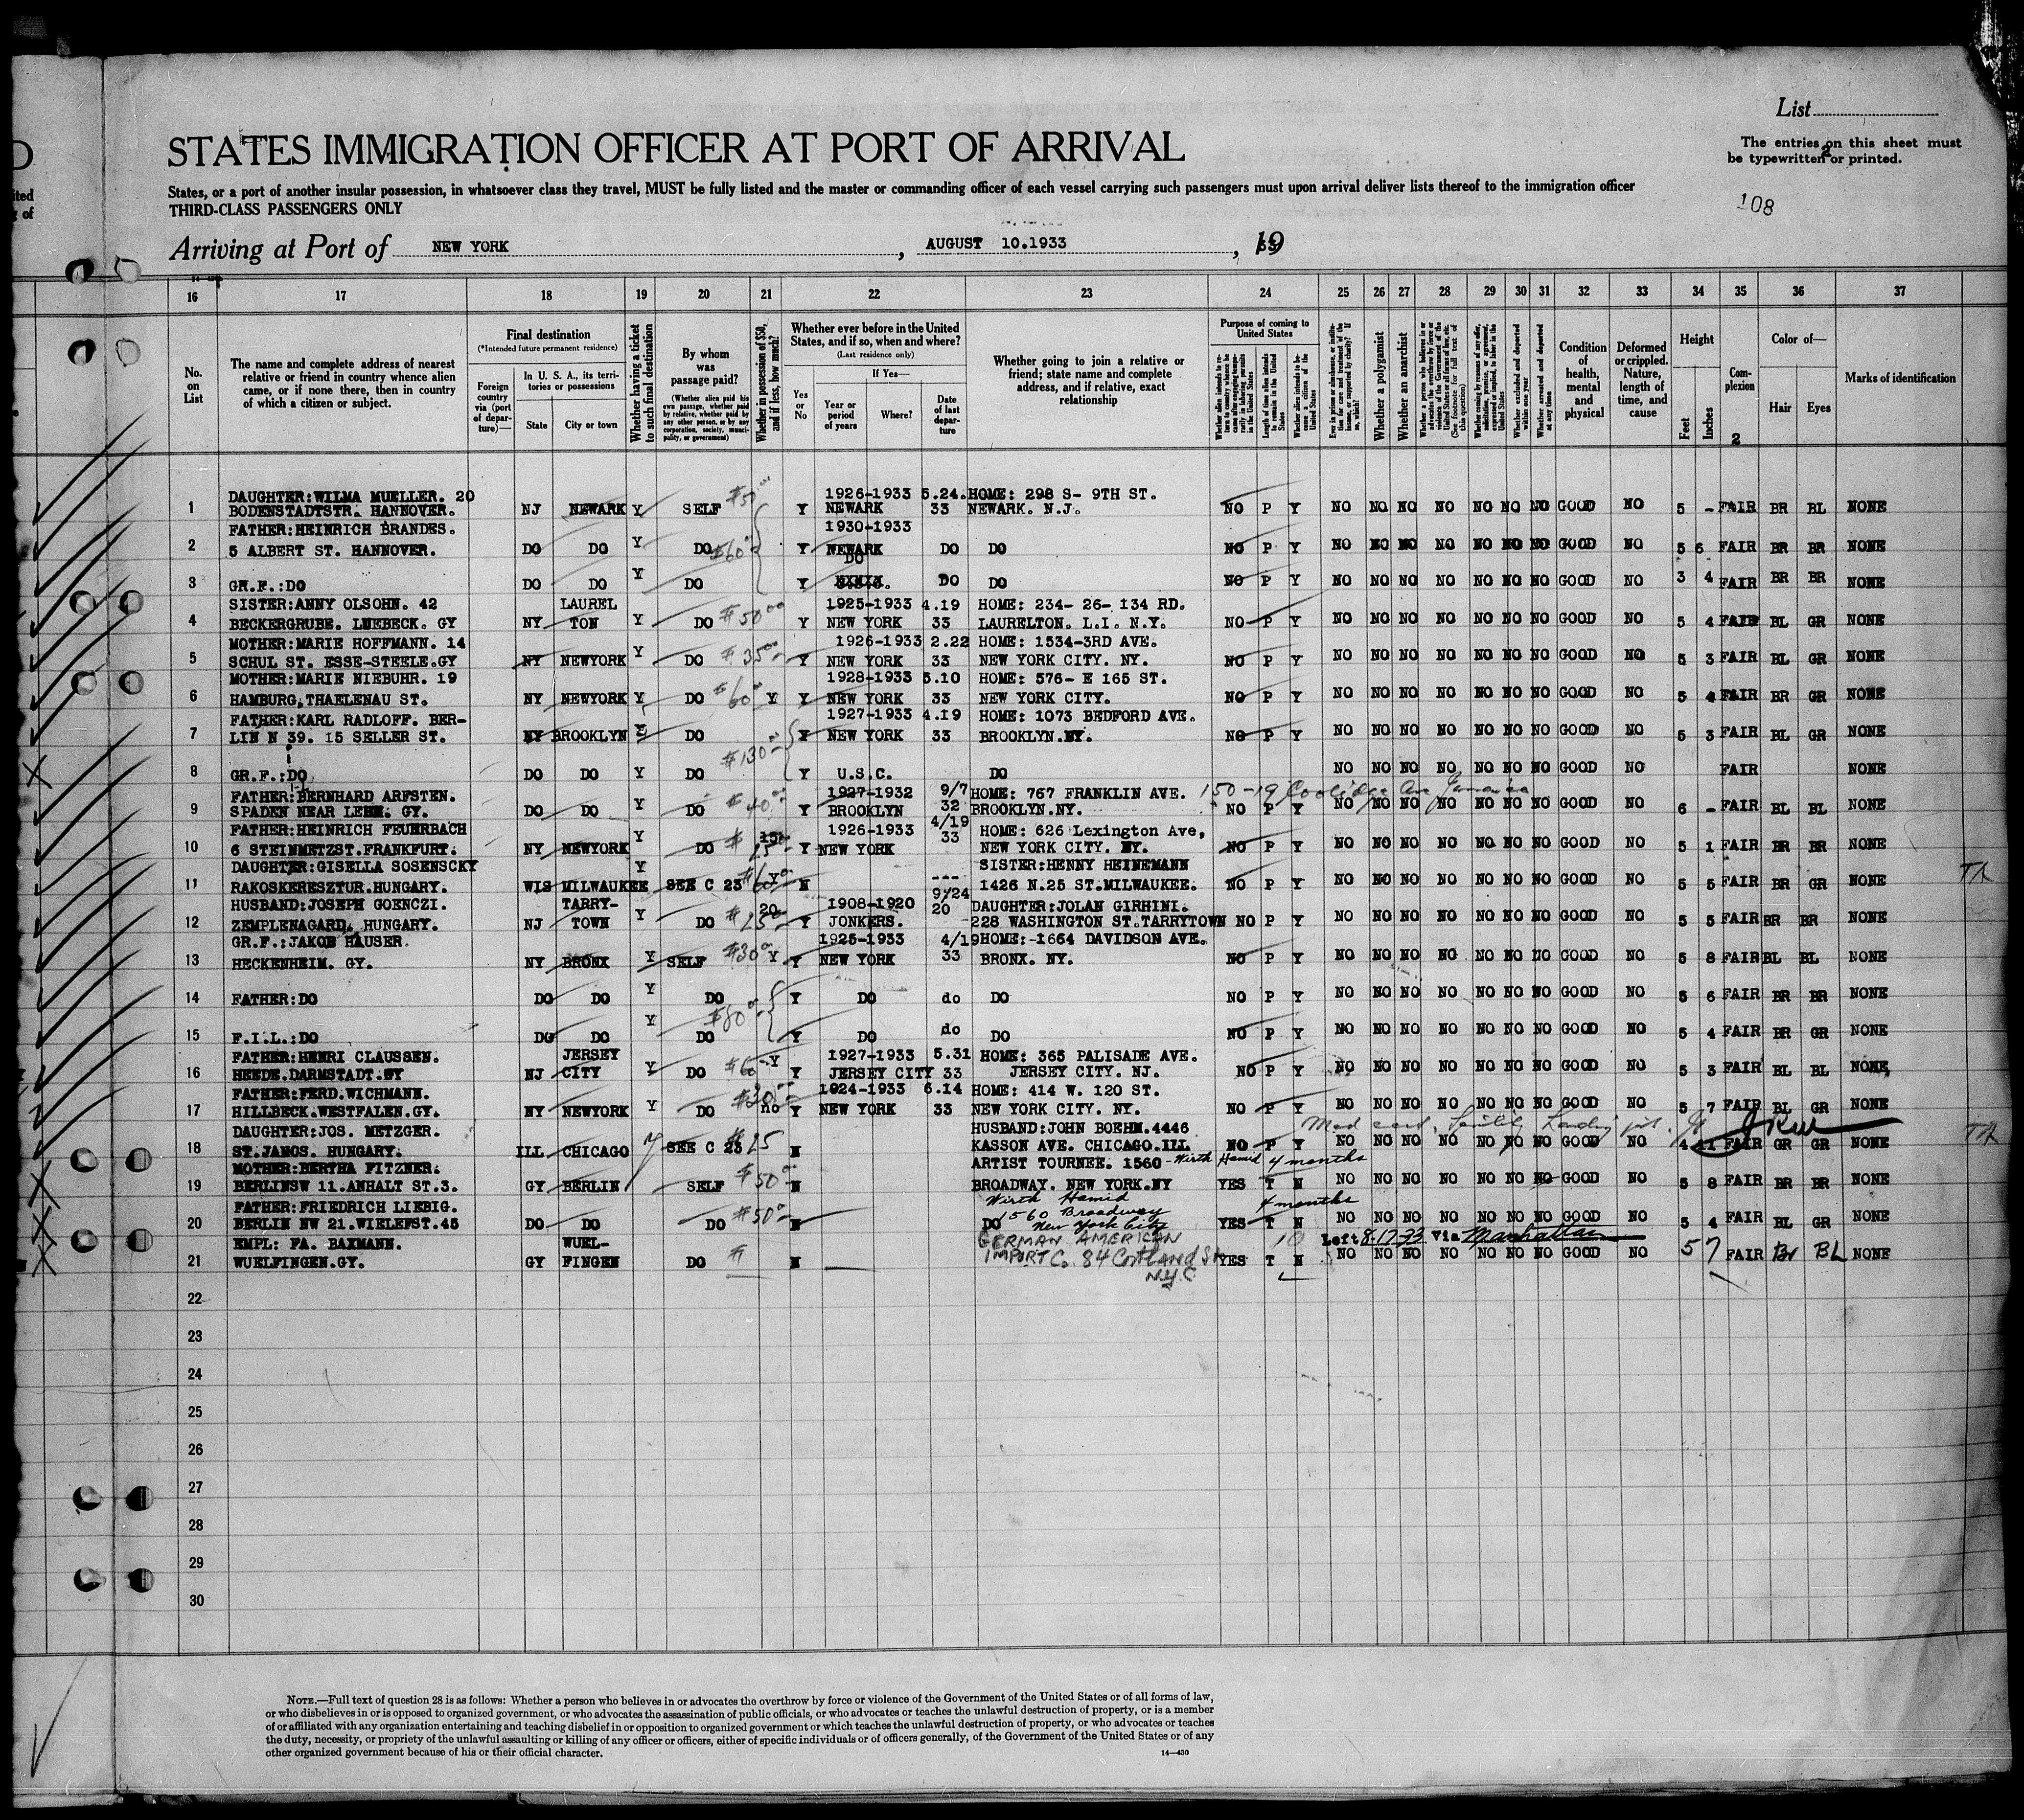 List
STATES IMMIGRATION OFFICER AT PORT OF ARRIVAL
The entries on this sheet must
be typewritten or printed.
2
States, or a port of another insular possession, in whatsoever class they travel, MUST be fully listed and the master or commanding officer of each vessel carrying such passengers must upon arrival deliver lists thereof to the immigration officer
THIRD-CLASS PASSENGERS ONLY
108
Arriving at Port of NEW YORK, AUGUST 10.1933, 19
16 17 18 19 20 21 22 23 24 25 26 27 28 29 30 31 32 33 34 35 36 37
No. on List
The name and complete address of nearest relative or friend in country whence alien came, or if none there, then in country of which a citizen or subject.
Final destination
(*Intended future permanent residence)
Foreign country via (port of departure)—
In U. S. A., its territories or possessions
State
City or town
Whether having a ticket to such final destination
By whom was passage paid?
(Whether alien paid his own passage, whether paid by relative, whether paid by any other person, or by any corporation, society, municipality, or government)
Whether in possession of $50, and if less, how much?
Whether ever before in the United States, and if so, when and where?
(Last residence only)
Yes or No
If Yes—
Year or period of years
Where?
Date of last departure
Whether going to join a relative or friend; state name and complete address, and if relative, exact relationship
Purpose of coming to United States
Length of time alien intends to remain in the United States
Whether alien intends to become a citizen of the United States
Whether a polygamist
Whether an anarchist
(See footnote for full text of this question)
Whether excluded and deported within one year
Whether arrested and deported at any time
Condition of health, mental and physical
Deformed or crippled. Nature, length of time, and cause
Height
Feet
Inches
Complexion
2
Color of—
Hair
Eyes
Marks of identification
DAUGHTER:WILMA MUELLER. 20 $50 1926-1933 5.24. HOME: 298 S- 9TH ST.
1 BODENSTADTSTR. HANNOVER. NJ NEWARK Y SELF Y NEWARK 33 NEWARK. N.J. NO P Y NO NO NO NO NO NO NO GOOD NO 5 - FAIR BR BL NONE
FATHER:HEINRICH BRANDES. 1930-1933
2 5 ALBERT ST. HANNOVER. DO DO Y DO $60 Y NEWARK DO DO NO P Y NO NO NO NO NO NO NO GOOD NO 5 6 FAIR BR BR NONE
DO
3 GR.F.:DO DO DO Y DO Y DO DO NO P Y NO NO NO NO NO NO NO GOOD NO 3 4 FAIR BR BR NONE
SISTER:ANNY OLSOHN. 42 LAUREL 1925-1933 4.19 HOME: 234- 26- 134 RD.
4 BECKERGRUBE. LUEBECK. GY NY TON Y DO $50 00 Y NEW YORK 33 LAURELTON. L.I. N.Y. NO P Y NO NO NO NO NO NO NO GOOD NO 5 4 FAIR BL GR NONE
MOTHER:MARIE HOFFMANN. 14 1926-1933 2.22 HOME: 1534-3RD AVE.
5 SCHUL ST. ESSE-STEELE.GY NY NEWYORK Y DO $35 Y NEW YORK 33 NEW YORK CITY. NY. NO P Y NO NO NO NO NO NO NO GOOD NO 5 3 FAIR BL GR NONE
MOTHER:MARIE NIEBUHR. 19 1928-1933 5.10 HOME: 576- E 165 ST.
6 HAMBURG,THAELENAU ST. NY NEWYORK Y DO $60 Y Y NEW YORK 33 NEW YORK CITY. NO P Y NO NO NO NO NO NO NO GOOD NO 5 4 FAIR BR GR NONE
FATHER:KARL RADLOFF. BER- 1927-1933 4.19 HOME: 1073 BEDFORD AVE.
7 LIN N 39. 15 SELLER ST. NY BROOKLYN Y DO Y NEW YORK 33 BROOKLYN.NY. NO P Y NO NO NO NO NO NO NO GOOD NO 5 3 FAIR BL GR NONE
$130
8 GR.F.:DO DO DO Y DO Y U.S.C. DO NO NO NO NO NO NO NO GOOD NO FAIR NONE
FATHER:BERNHARD ARFSTEN. 1927-1932 9/7 HOME: 767 FRANKLIN AVE. 150-19 Coolidge Ave Jamaica
9 SPADEN NEAR LEHE. GY. DO DO Y DO $40 Y BROOKLYN 32 BROOKLYN.NY. NO P Y NO NO NO NO NO NO NO GOOD NO 6 - FAIR BL BL NONE
FATHER:HEINRICH FEUERBACH 1926-1933 4/19 HOME: 626 Lexington Ave,
10 6 STEINMETZST.FRANKFURT. NY NEWYORK Y DO $ 15 Y NEW YORK 33 NEW YORK CITY. NY. NO P Y NO NO NO NO NO NO NO GOOD NO 5 1 FAIR BR BR NONE
DAUGHTER:GISELLA SOSENSCKY SISTER:HENNY HEINEMANN
11 RAKOSKERESZTUR.HUNGARY. WIS MILWAUKEE Y SEE C 23 $60 Y N --- 1426 N.25 ST.MILWAUKEE. NO P Y NO NO NO NO NO NO NO GOOD NO 5 5 FAIR BR GR NONE
HUSBAND:JOSEPH GOENCZI. TARRY- 20 1908-1920 9/24 DAUGHTER:JOLAN GIRHINI.
12 ZEMPLENAGARD. HUNGARY. NJ TOWN Y DO $25 Y JONKERS. 20 228 WASHINGTON ST.TARRYTOWN NO P Y NO NO NO NO NO NO NO GOOD NO 5 5 FAIR BR BR NONE
GR.F.:JAKOB HAUSER. 1925-1933 4/19 HOME:-1664 DAVIDSON AVE.
13 HECKENHEIM. GY. NY BRONX Y SELF $30 Y Y NEW YORK 33 BRONX. NY. NO P Y NO NO NO NO NO NO NO GOOD NO 5 8 FAIR BL BL NONE
14 FATHER:DO DO DO Y DO Y DO do DO NO P Y NO NO NO NO NO NO NO GOOD NO 5 6 FAIR BR BR NONE
$80
15 F.I.L.:DO DO DO Y DO Y DO do DO NO P Y NO NO NO NO NO NO NO GOOD NO 5 4 FAIR BR GR NONE
FATHER:HENRI CLAUSSEN. JERSEY 1927-1933 5.31 HOME: 365 PALISADE AVE.
16 HEEDE.DARMSTADT.GY NJ CITY Y DO $60 Y Y JERSEY CITY 33 JERSEY CITY. NJ. NO P Y NO NO NO NO NO NO NO GOOD NO 5 3 FAIR BL BL NONE
FATHER:FERD.WICHMANN. 1924-1933 6.14 HOME: 414 W. 120 ST.
17 HILLBECK.WESTFALEN.GY. NY NEWYORK Y DO no Y NEW YORK 33 NEW YORK CITY. NY. NO P Y NO NO NO NO NO NO NO GOOD NO 5 7 FAIR BL GR NONE
DAUGHTER:JOS. METZGER. HUSBAND:JOHN BOEHM.4446 Med cert.
18 ST.JANOS. HUNGARY. ILL CHICAGO Y SEE C 23 $25 N KASSON AVE. CHICAGO.ILL NO P Y NO NO NO NO NO NO NO GOOD NO 4 11 FAIR GR GR NONE
MOTHER:BERTHA FITZNER. ARTIST TOURNEE. 1560 - Wirth Hamid 4 months
19 BERLINSW 11.ANHALT ST.3. GY BERLIN SELF $50 N BROADWAY. NEW YORK.NY YES T N NO NO NO NO NO NO NO GOOD NO 5 8 FAIR BR BR NONE
FATHER:FRIEDRICH LIEBIG. Wirth Hamid 4 months
20 BERLIN NW 21.WIELEFST.45 DO DO DO $50 N DO 1560 Broadway New York City YES T N NO NO NO NO NO NO NO GOOD NO 5 4 FAIR BL GR NONE
EMPL: FA. BAXMANN. WUEL- GERMAN AMERICAN 10 Left 8-17-33 Via Manhattan
21 WUELFINGEN.GY. GY FINGEN DO $ N IMPORT Co. 84 Cortland St N.Y.C. YES T N NO NO NO NO NO NO NO GOOD NO 5 7 FAIR Br BL NONE
22
23
24
25
26
27
28
29
30
NOTE.—Full text of question 28 is as follows: Whether a person who believes in or advocates the overthrow by force or violence of the Government of the United States or of all forms of law,
or who disbelieves in or is opposed to organized government, or who advocates the assassination of public officials, or who advocates or teaches the unlawful destruction of property, or is a member
of or affiliated with any organization entertaining and teaching disbelief in or opposition to organized government or which teaches the unlawful destruction of property, or who advocates or teaches
the duty, necessity, or propriety of the unlawful assaulting or killing of any officer or officers, either of specific individuals or of officers generally, of the Government of the United States or of any
other organized government because of his or their official character.
14—430